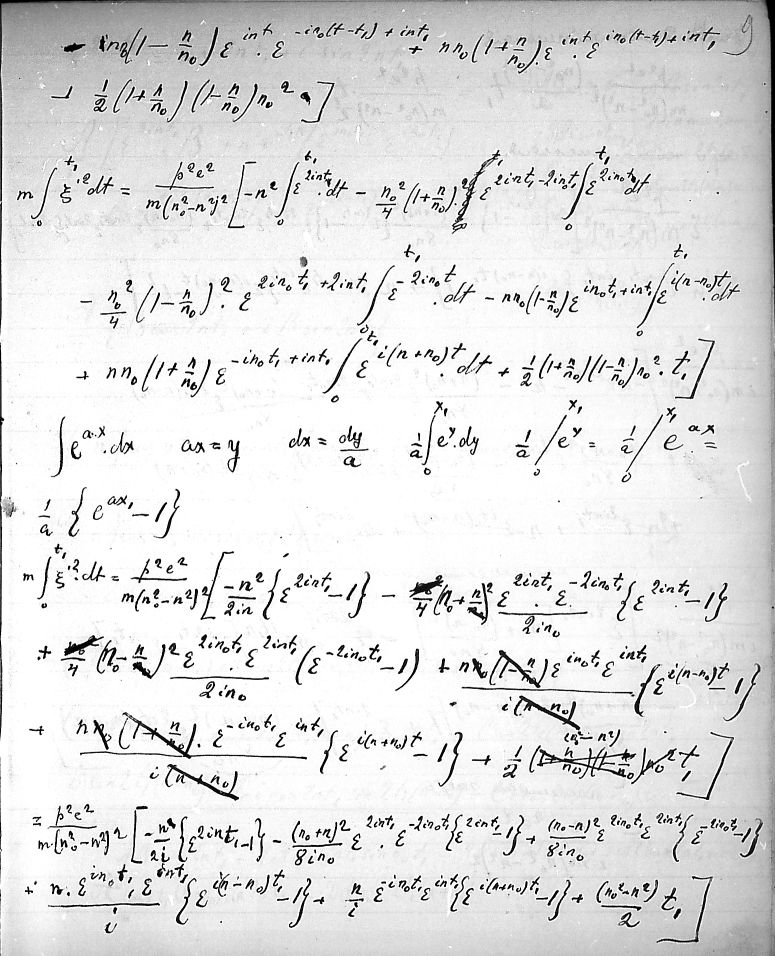 9
- inn₀(1 - n/n₀) ε^{int} · ε^{-in₀(t-t₁) + int₁} + nn₀(1 + n/n₀) · ε^{int} · ε^{in₀(t-t₁) + int₁}
+ 1/2 (1 + n/n₀)(1 - n/n₀) n₀² ]
m ∫₀^{t₁} ξ̇² dt = p²e²/m(n₀²-n²)² [ -n² ∫₀^{t₁} ε^{2int} · dt - n₀²/4 (1 + n/n₀)² · ε^{2int₁ - 2in₀t₁} ∫₀^{t₁} ε^{2in₀t} dt
- n₀²/4 (1 - n/n₀)² · ε^{2in₀t₁ + 2int₁} ∫₀^{t₁} ε^{-2in₀t} · dt - nn₀(1 - n/n₀) ε^{in₀t₁ + int₁} ∫₀^{t₁} ε^{i(n-n₀)t} · dt
+ nn₀(1 + n/n₀) ε^{-in₀t₁ + int₁} ∫₀^{t₁} ε^{i(n+n₀)t} · dt + 1/2 (1 + n/n₀)(1 - n/n₀) n₀² · t₁ ]
∫ e^{a·x} · dx   ax = y   dx = dy/a   1/a ∫₀^{x₁} e^y · dy   1/a /₀^{x₁} e^y =   1/a /₀^{x₁} e^{ax} =
1/a { e^{ax₁} - 1 }
m ∫₀^{t₁} ξ̇² · dt = p²e²/m(n₀²-n²)² [ -n²/2in { ε^{2int₁} - 1 } - 1/4 (n₀ + n)² ε^{2int₁} · ε^{-2in₀t₁}/2in₀ { ε^{2int₁} - 1 }
+ 1/4 (n₀ - n)² ε^{2in₀t₁} · ε^{2int₁}/2in₀ ( ε^{-2in₀t₁} - 1 ) + n ε^{in₀t₁} ε^{int₁}/i { ε^{i(n-n₀)t} - 1 }
+ n · ε^{-in₀t₁} ε^{int₁}/i { ε^{i(n+n₀)t} - 1 } + 1/2 (n₀² - n²) t₁ ]
= p²e²/m(n₀²-n²)² [ -n/2i { ε^{2int₁} - 1 } - (n₀+n)²/8in₀ ε^{2int₁} · ε^{-2in₀t₁} { ε^{2int₁} - 1 } + (n₀-n)²/8in₀ ε^{2in₀t₁} ε^{2int₁} { ε^{-2in₀t₁} - 1 }
+ n · ε^{in₀t₁} · ε^{int₁}/i { ε^{i(n-n₀)t₁} - 1 } + n/i ε^{-in₀t₁} ε^{int₁} { ε^{i(n+n₀)t₁} - 1 } + (n₀²-n²)/2 t₁ ]